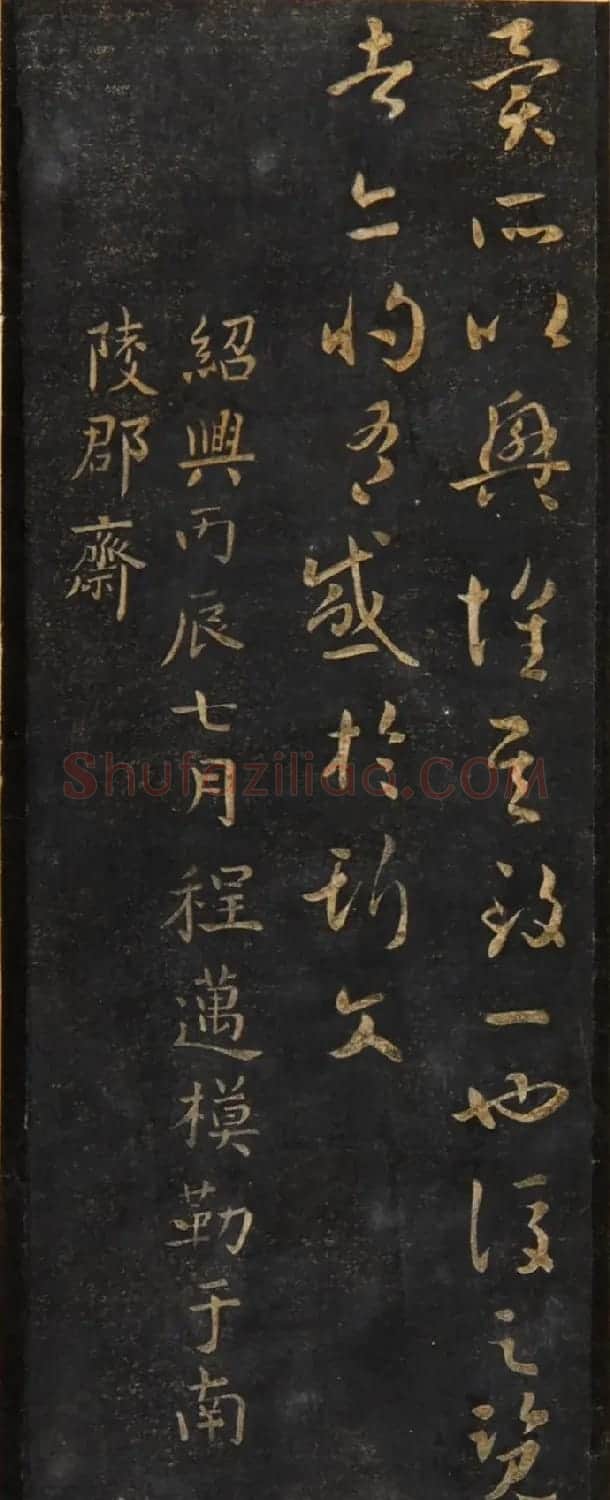 異所以興懷其致一也後之覽
者亦將有感於斯文
紹興丙辰七月程邁模勒于南
陵郡齋
Shufaziliao.COM